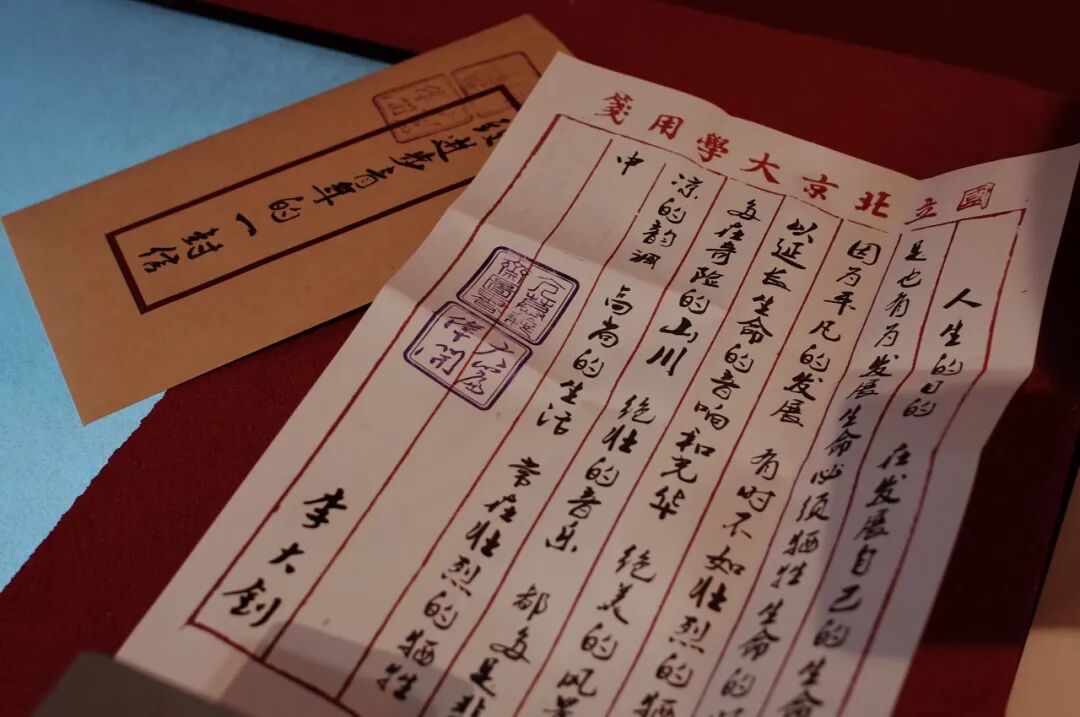 國立北京大學用箋
人生的目的 在发展自己的生命
是也有为发展生命必须牺牲生命的
因为平凡的发展 有时不如壮烈的牺
以延长生命的音响和光华 绝美的风景
多在奇险的山川 绝壮的音乐 都多是悲
凉的韵调 高尚的生活 常在壮烈的牺牲
中
李大钊
致进步青年的一封信